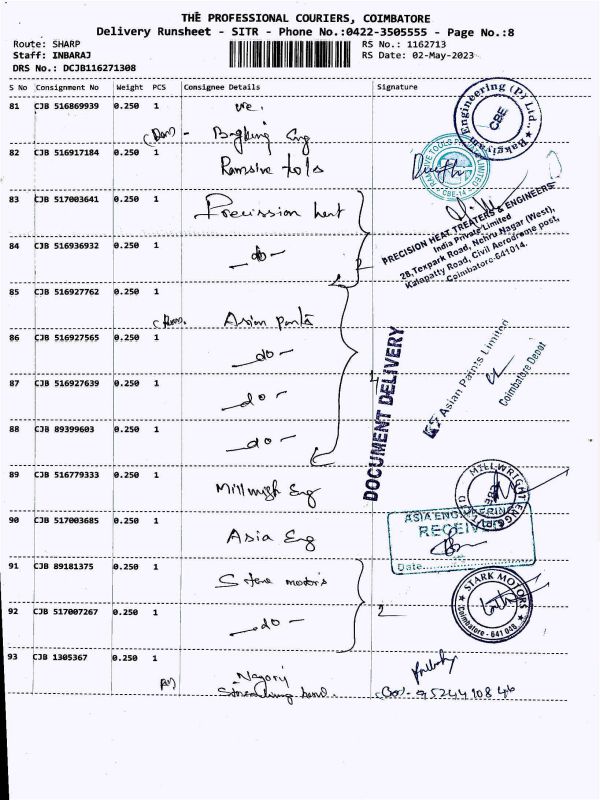 THE PROFESSIONAL COURIERS, COIMBATORE
Delivery Runsheet - SITR - Phone No.:0422-3505555 - Page No.:8
Route: SHARP
Staff: INBARAJ
DRS No.: DCJB116271308
RS No.: 1162713
RS Date: 02-May-2023
S No Consignment No Weight PCS Consignee Details Signature
81 CJB 516869939 0.250 1
Engineering (P) Ltd.,
CBE
Eng
82 CJB 516917184 0.250 1 Ramsive tools
CBE-14
83 CJB 517003641 0.250 1 Precission heat
PRECISION HEAT TREATERS & ENGINEERS
India Private Limited
28, Texpark Road, Nehru Nagar (West),
Kalapatty Road, Civil Aerodrome post,
Coimbatore-641014.
84 CJB 516936932 0.250 1 - do -
2
85 CJB 516927762 0.250 1 Asian paints
86 CJB 516927565 0.250 1 - do -
87 CJB 516927639 0.250 1 - do -
88 CJB 89399603 0.250 1 - do -
4
DOCUMENT DELIVERY
Asian Paints Limited
Coimbatore Depot
89 CJB 516779333 0.250 1 Millwright Eng
MILLWRIGHT ENGG
90 CJB 517003685 0.250 1 Asia Eng
ASIA ENGINEERING
RECEIVED
Date
91 CJB 89181375 0.250 1 Stone motors
92 CJB 517007267 0.250 1 - do -
2
STARK MOTORS
Coimbatore - 641 048
93 CJB 1305367 0.250 1
9524410846